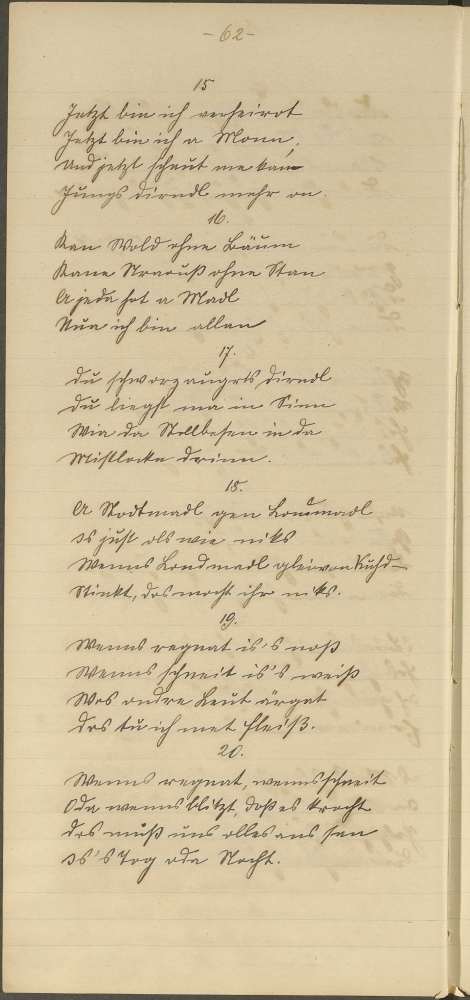 -62-
15
Jetzt bin ich verheirot
Jetzt bin ich a Monn,
Und jetzt schaut me kai
Jungs Dirndl mehr on.
16.
Kan Wold ohne Bäum
Kane Strouß ohne Stan
A jeda hot a Madl
Nua ich bin allan
17.
Du schworzaugets Dirndl
Du liegst ma in Sinn
Wia da Stollbesen in da
Mistlocke drinn.
18.
A Stodtmadl gen Londmadl
Is just ols wie niks
Wenns Londmadl glei von Kuhd-
Stinkt, das mocht ihr niks.
19.
Wenns regnat is's noß
Wenns schneit is's weiß
Wos ondre Leut ärgat
Dos tu ich met Fleiß.
20.
Wenns regnat, wenns schneit
Oda wenns blitzt, doß es krocht
Dos muß uns olles ans sen
Is's Tog oda Nocht.